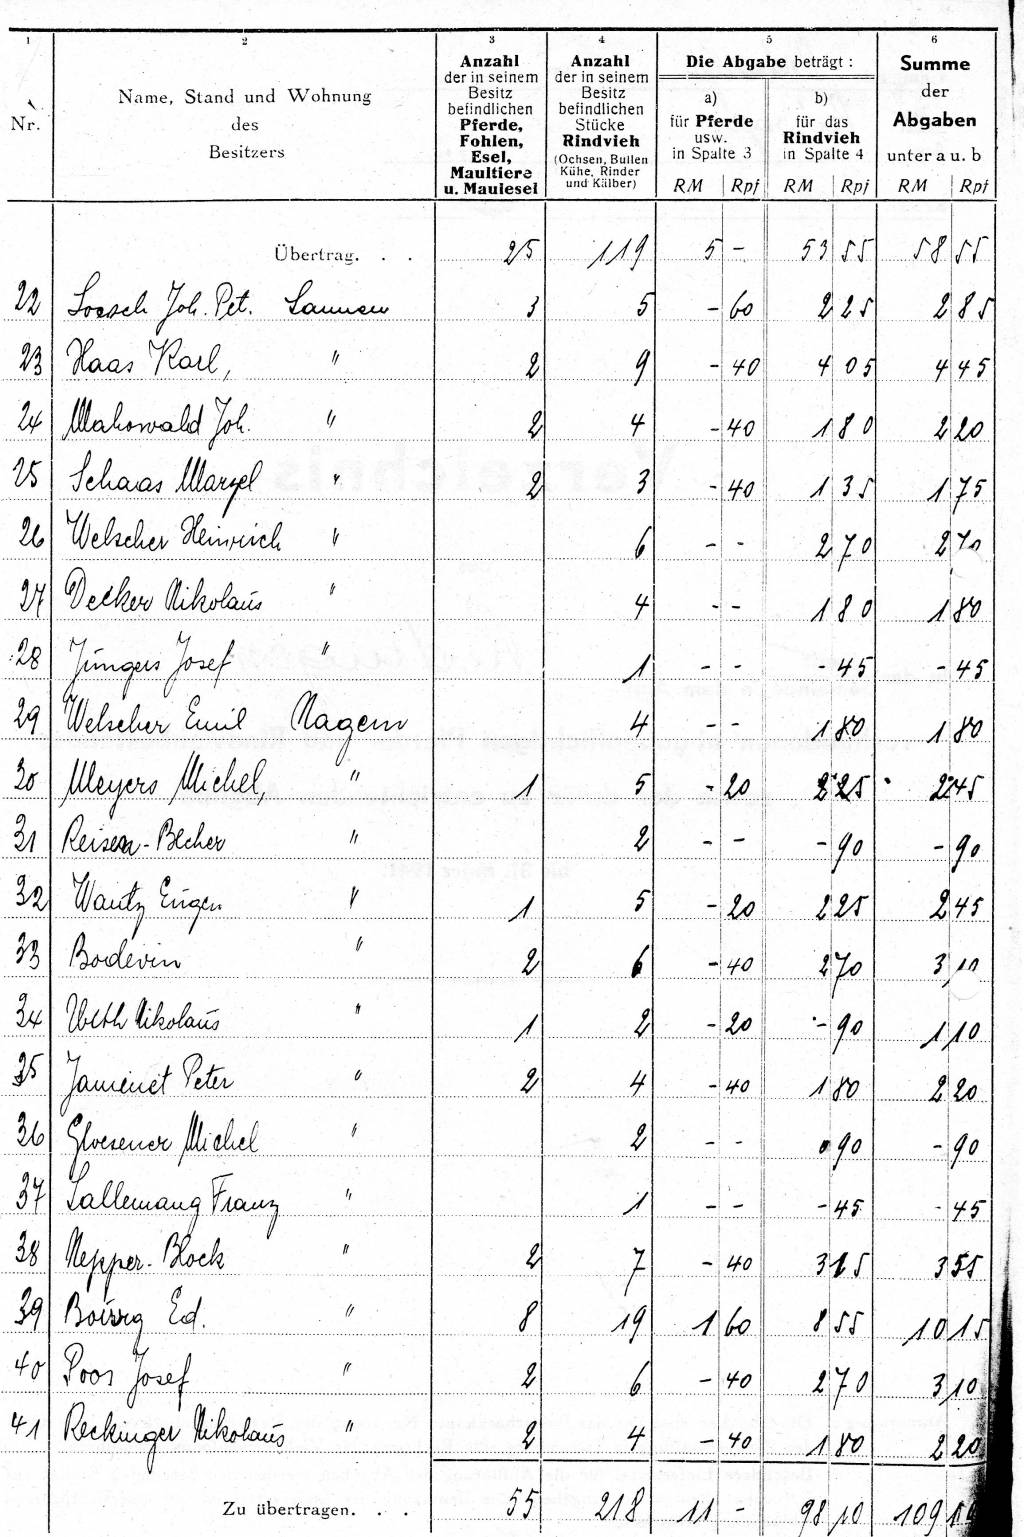 1 2 3 4 5 6
Nr. Name, Stand und Wohnung des Besitzers Anzahl der in seinem Besitz befindlichen Pferde, Fohlen, Esel, Maultiere u. Maulesel Anzahl der in seinem Besitz befindlichen Stücke Rindvieh (Ochsen, Bullen Kühe, Rinder und Kälber) Die Abgabe beträgt: a) für Pferde usw. in Spalte 3 b) für das Rindvieh in Spalte 4 Summe der Abgaben unter a u. b
RM Rpf RM Rpf RM Rpf
Übertrag. . . 25 119 5 - 53 55 58 55
22 Loesch Joh. Pet. 3 5 - 60 2 25 2 85
23 Haas Karl, " 2 9 - 40 4 05 4 45
24 Mahowald Joh. " 2 4 - 40 1 80 2 20
25 Schaas Marzel " 2 3 - 40 1 35 1 75
26 Welscher Heinrich " 6 - - 2 70 2 70
27 Decker Nikolaus " 4 - - 1 80 1 80
28 Jüngers Josef " 1 - - - 45 - 45
29 Welscher Emil Nagem 4 - - 1 80 1 80
30 Meyers Michel, " 1 5 - 20 2 25 2 45
31 Reisen-Becher " 2 - - - 90 - 90
32 Wautz Eugen " 1 5 - 20 2 25 2 45
33 Bodevin " 2 6 - 40 2 70 3 10
34 Nikolaus " 1 2 - 20 - 90 1 10
35 Jaminet Peter " 2 4 - 40 1 80 2 20
36 Gloesener Michel " 2 - - 90 - 90
37 Lallemang Franz " 1 - - - 45 - 45
38 Nepper-Block " 2 7 - 40 3 15 3 55
39 Ed. " 8 19 1 60 8 55 10 15
40 Poos Josef " 2 6 - 40 2 70 3 10
41 Reckinger Nikolaus " 2 4 - 40 1 80 2 20
Zu übertragen. . . 55 218 11 - 98 10 109